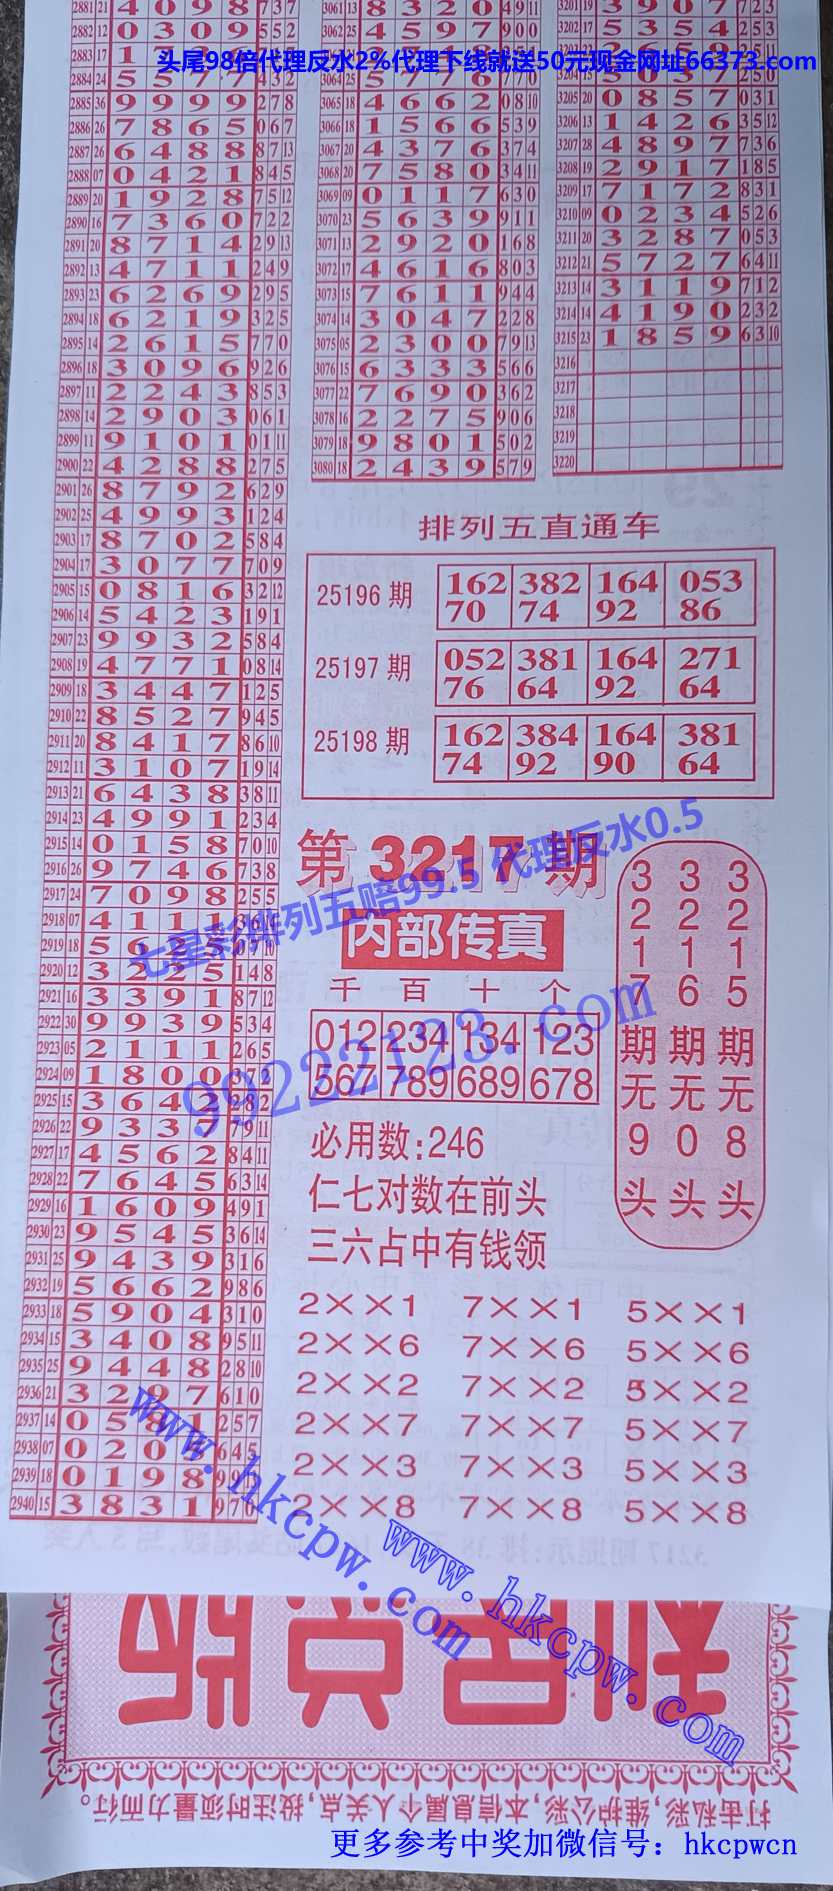 头尾98倍代理反水2%代理下线就送50元现金网址66373.com
2881 21 4 0 9 8 7 3 7
2882 12 0 3 0 9 5 5 2
2883 17 1
2884 24 5 5 4 3 2
2885 36 9 9 9 9 2 7 8
2886 26 7 8 6 5 0 6 7
2887 26 6 4 8 8 8 7 13
2888 07 0 4 2 1 8 4 5
2889 20 1 9 2 8 7 5 12
2890 16 7 3 6 0 7 2 2
2891 20 8 7 1 4 2 9 13
2892 13 4 7 1 1 2 4 9
2893 23 6 2 6 9 2 9 5
2894 18 6 2 1 9 3 2 5
2895 14 2 6 1 5 7 7 0
2896 18 3 0 9 6 9 2 6
2897 11 2 2 4 3 8 5 3
2898 14 2 9 0 3 0 6 1
2899 11 9 1 0 1 0 1 11
2900 22 4 2 8 8 2 7 5
2901 26 8 7 9 2 6 2 9
2902 25 4 9 9 3 1 2 4
2903 17 8 7 0 2 5 8 4
2904 17 3 0 7 7 7 0 9
2905 15 0 8 1 6 3 2 12
2906 14 5 4 2 3 1 9 1
2907 23 9 9 3 2 5 8 4
2908 19 4 7 7 1 0 8 14
2909 18 3 4 4 7 1 2 5
2910 22 8 5 2 7 9 4 5
2911 20 8 4 1 7 8 6 10
2912 11 3 1 0 7 1 9 14
2913 21 6 4 3 8 3 8 11
2914 23 4 9 9 1 2 3 4
2915 14 0 1 5 8 7 0 10
2916 26 9 7 4 6 7 3 8
2917 24 7 0 9 8 2 5 5
2918 07 4 1 1 1
2919 18 5 6 2 5
2920 12 3 2 2 5 1 4 8
2921 16 3 3 9 1 8 7 12
2922 30 9 9 3 9 5 3 4
2923 05 2 1 1 1 2 6 5
2924 09 1 8 0 0
2925 15 3 6 4 2 2 8 2
2926 22 9 3 3 7 7 9 11
2927 17 4 5 6 2 8 4 11
2928 22 7 6 4 5 6 3 14
2929 16 1 6 0 9 4 9 1
2930 23 9 5 4 5 3 6 14
2931 25 9 4 3 9 3 1 6
2932 19 5 6 6 2 9 8 6
2933 18 5 9 0 4 3 1 0
2934 15 3 4 0 8 9 5 11
2935 25 9 4 4 8 2 8 10
2936 21 3 2 9 7 6 1 0
2937 14 0 5 8 1 2 5 7
2938 07 0 2 0 5 6 4 5
2939 18 0 1 9 8 9 9
2940 15 3 8 3 1 9 7 6
3061 13 8 3 2 0 4 9 11
3062 25 4 5 9 7 9 0 0
3064 25
3065 18 4 6 6 2 0 8 10
3066 18 1 5 6 6 5 3 9
3067 20 4 3 7 6 3 7 4
3068 20 7 5 8 0 3 4 11
3069 09 0 1 1 7 6 3 0
3070 23 5 6 3 9 9 1 1
3071 13 2 9 2 0 1 6 8
3072 17 4 6 1 6 8 0 3
3073 15 7 6 1 1 9 4 4
3074 14 3 0 4 7 2 2 8
3075 05 2 3 0 0 7 9 13
3076 15 6 3 3 3 5 6 6
3077 22 7 6 9 0 3 6 2
3078 16 2 2 7 5 9 0 6
3079 18 9 8 0 1 5 0 2
3080 18 2 4 3 9 5 7 9
3201 19 3 9 0 7 7 2 3
3202 17 5 3 5 4 2 5 3
3205 20 0 8 5 7 0 3 1
3206 13 1 4 2 6 3 5 12
3207 28 4 8 9 7 7 3 6
3208 19 2 9 1 7 1 8 5
3209 17 7 1 7 2 8 3 1
3210 09 0 2 3 4 5 2 6
3211 20 3 2 8 7 0 5 3
3212 21 5 7 2 7 6 4 11
3213 14 3 1 1 9 7 1 2
3214 14 4 1 9 0 2 3 2
3215 23 1 8 5 9 6 3 10
3216
3217
3218
3219
3220
排列五直通车
25196期 162 382 164 053
70 74 92 86
25197期 052 381 164 271
76 64 92 64
25198期 162 384 164 381
74 92 90 64
第3217期
七星彩排列五赔99.5 代理反水0.5
内部传真
千 百 十 个
012 234 134 123
567 789 689 678
99222123.com
必用数:246
仁七对数在前头
三六占中有钱领
3217期无9头
3216期无0头
3215期无8头
2××1 7××1 5××1
2××6 7××6 5××6
2××2 7××2 5××2
2××7 7××7 5××7
2××3 7××3 5××3
2××8 7××8 5××8
www.hkcpw.com
www.hkcpw.com
打击私彩,维护公彩,本信息属个人关点,投注时须量力而行。
更多参考中奖加微信号：hkcpwcn